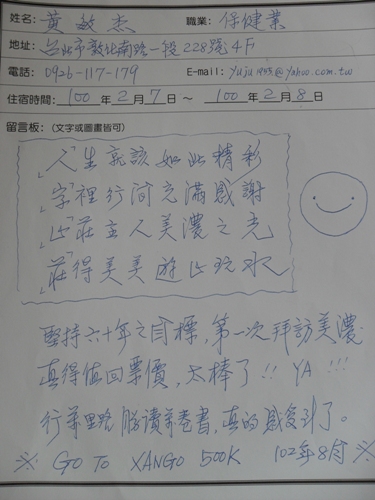 姓名: 黃敏杰 職業: 保健業
地址: 台北市敦化南路一段228號4F
電話: 0926-117-179 E-mail: yuju1985@yahoo.com.tw
住宿時間: 100年2月7日～100年2月8日
留言板: (文字或圖畫皆可)
「人」生就該如此精彩
「字」裡行間充滿感謝
「山」莊主人美濃之光
「莊」得美美遊山玩水
堅持六十年之目標,第一次拜訪美濃
真得值回票價,太棒了!! YA!!!
行萬里路勝讀萬卷書,真的感受到了。
※ GO TO XANGO 500K 102年8月 ※